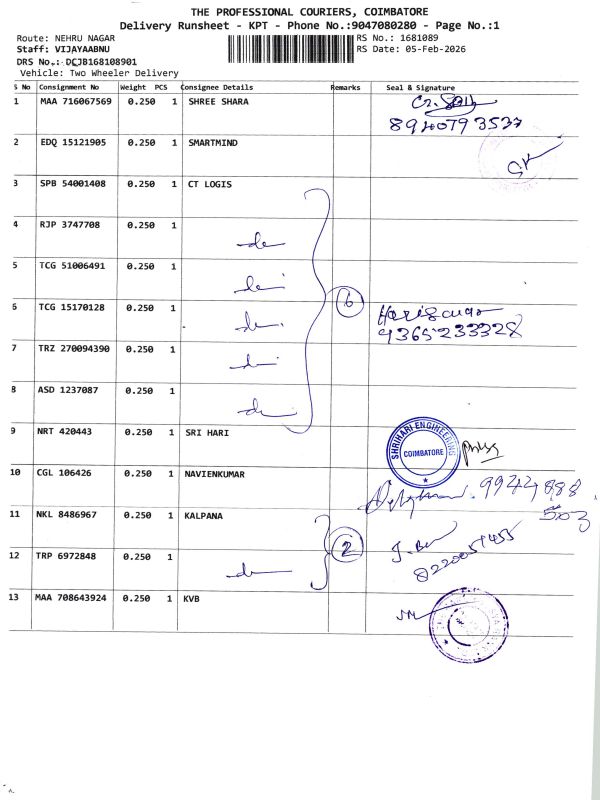 THE PROFESSIONAL COURIERS, COIMBATORE
Delivery Runsheet - KPT - Phone No.:9047080280 - Page No.:1
Route: NEHRU NAGAR RS No.: 1681089
Staff: VIJAYAABNU RS Date: 05-Feb-2026
DRS No.: DCJB168108901
Vehicle: Two Wheeler Delivery
S No Consignment No Weight PCS Consignee Details Remarks Seal & Signature
1 MAA 716067569 0.250 1 SHREE SHARA
8940793537
2 EDQ 15121905 0.250 1 SMARTMIND
3 SPB 54001408 0.250 1 CT LOGIS
4 RJP 3747708 0.250 1
5 TCG 51006491 0.250 1
6 TCG 15170128 0.250 1 6
9365233328
7 TRZ 270094390 0.250 1
8 ASD 1237087 0.250 1
9 NRT 420443 0.250 1 SRI HARI SHRIHARI ENGINEERING COIMBATORE
10 CGL 106426 0.250 1 NAVIENKUMAR 9944888
503
11 NKL 8486967 0.250 1 KALPANA 2
12 TRP 6972848 0.250 1
13 MAA 708643924 0.250 1 KVB